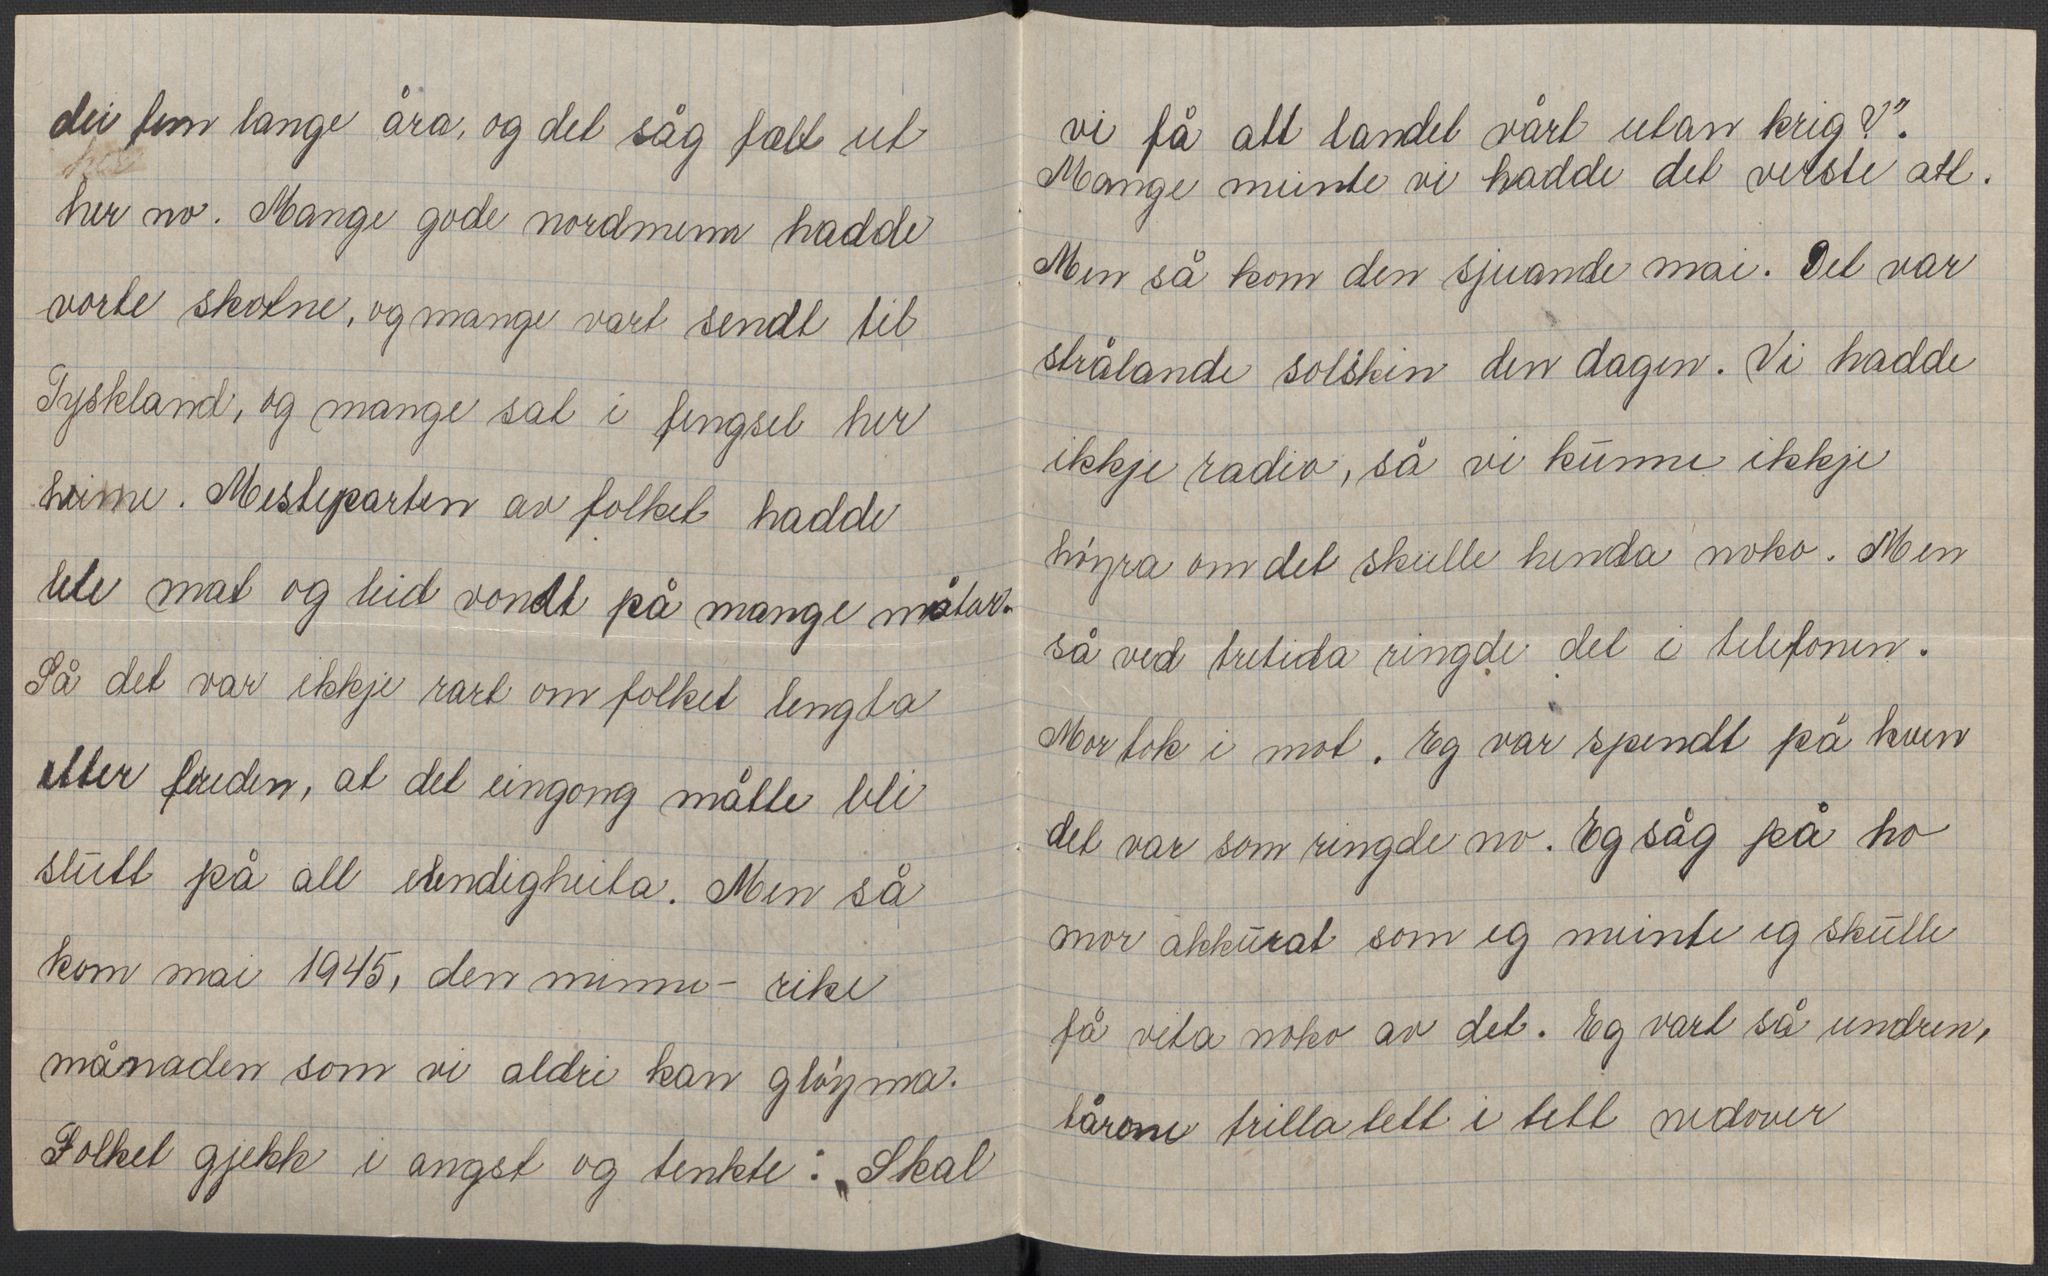 dei fem lange åra, og det såg fælt ut
her no. Mange gode nordmenn hadde
vorte skotne, og mange vart sendt til
Tyskland, og mange sat i fengsel her
heime. Mesteparten av folket hadde
lite mat og leid vondt på mange måtar.
Så det var ikkje rart om folket lengta
etter freden, at det eingong måtte bli
slutt på all elendigheita. Men så
kom mai 1945, den minne- rike
månaden som vi aldri kan gløyma.
Folket gjekk i angst og tenkte: „Skal
vi få att landet vårt utan krig?".
Mange meinte vi hadde det verste att.
Men så kom den sjuande mai. Det var
strålande solskin den dagen. Vi hadde
ikkje radio, så vi kunne ikkje
høyra om det skulle henda noko. Men
så ved tretida ringde det i telefonen.
Mor tok i mot. Eg var spendt på kven
det var som ringde no. Eg såg på ho
mor akkurat som eg meinte eg skulle
få vita noko av det. Eg vart så undren,
tårene trilla tett i tett nedover